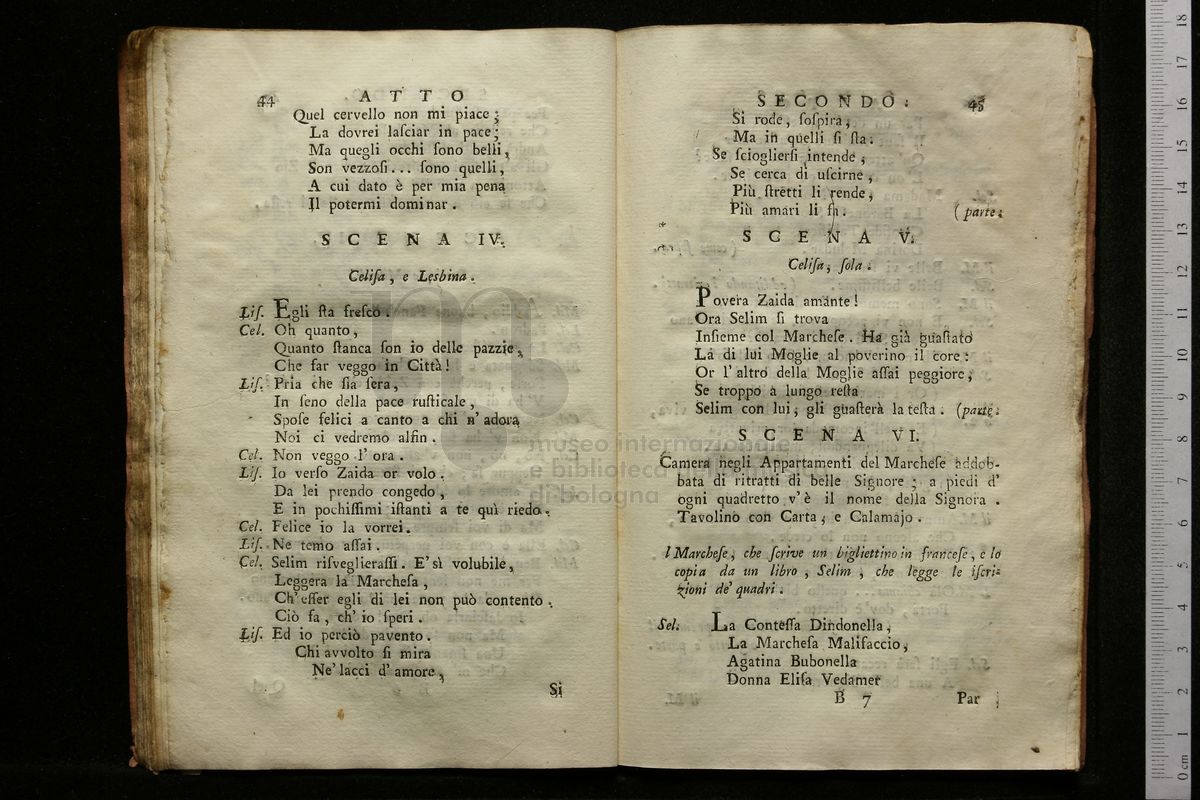 44 ATTO
Quel cervello non mi piace;
La dovrei laſciar in pace;
Ma quegli occhi ſono belli,
Son vezzoſi... ſono quelli,
A cui dato è per mia pena
Il potermi dominar.
SCENA IV.
Celiſa, e Lesbina.
Liſ. Egli ſta freſco.
Cel. Oh quanto,
Quanto ſtanca ſon io delle pazzie,
Che far veggo in Città!
Liſ. Pria che ſia ſera,
In ſeno della pace ruſticale,
Spoſe felici a canto a chi n'adora
Noi ci vedremo alfin.
Cel. Non veggo l'ora.
Liſ. Io verſo Zaida or volo.
Da lei prendo congedo,
E in pochiſſimi iſtanti a te quì riedo.
Cel. Felice io la vorrei.
Liſ. Ne temo aſſai.
Cel. Selim riſveglieraſſi. E' sì volubile,
Leggera la Marcheſa,
Ch'eſſer egli di lei non può contento.
Ciò fa, ch'io ſperi.
Liſ. Ed io perciò pavento.
Chi avvolto ſi mira
Ne' lacci d'amore,
Si
SECONDO. 45
Si rode, ſoſpira,
Ma in quelli ſi ſta.
Se ſcioglierſi intende,
Se cerca di uſcirne,
Più ſtretti li rende,
Più amari li fa. (parte.
SCENA V.
Celiſa, ſola.
Povera Zaida amante!
Ora Selim ſi trova
Inſieme col Marcheſe. Ha già guaſtato
La di lui Moglie al poverino il core:
Or l'altro della Moglie aſſai peggiore,
Se troppo a lungo reſta
Selim con lui, gli guaſterà la teſta. (parte.
SCENA VI.
Camera negli Appartamenti del Marcheſe addob-
bata di ritratti di belle Signore; a piedi d'
ogni quadretto v'è il nome della Signora.
Tavolino con Carta, e Calamajo.
l Marcheſe, che ſcrive un bigliettino in franceſe, e lo
copia da un libro, Selim, che legge le iſcri-
zioni de' quadri.
Sel. La Conteſſa Dindonella,
La Marcheſa Malifaccio,
Agatina Bubonella
Donna Eliſa Vedamer
B 7 Par
museo internazionale
e biblioteca della musica
di bologna
0 cm 1 2 3 4 5 6 7 8 9 10 11 12 13 14 15 16 17 18